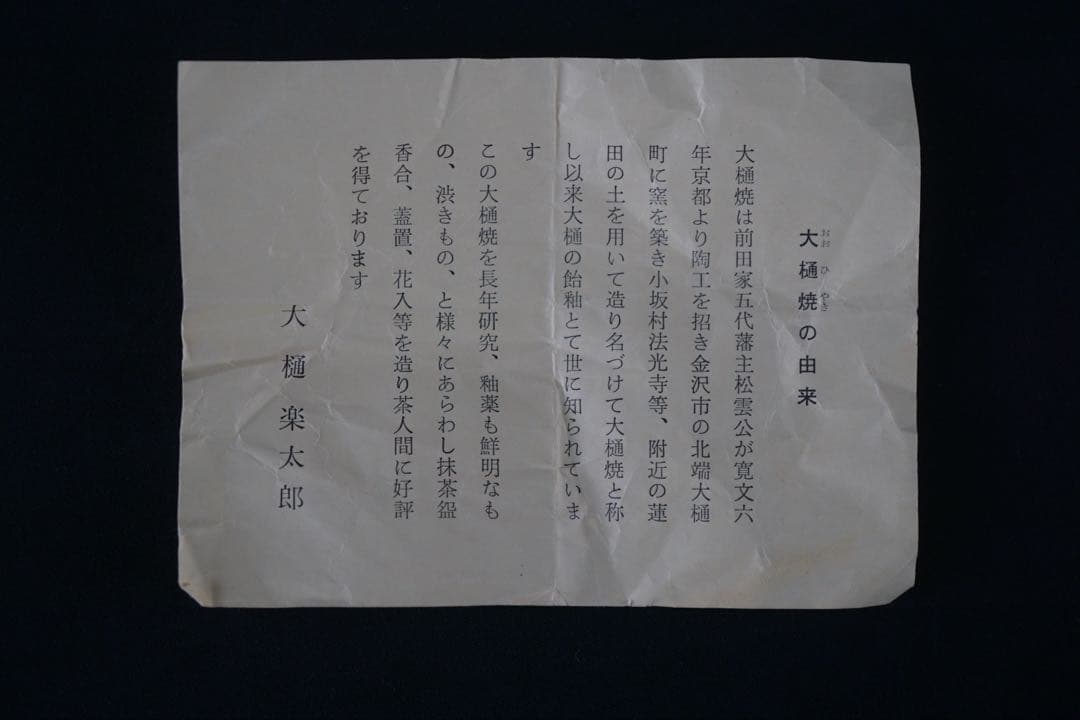 大樋焼の由来
おおひやき
大樋焼は前田家五代藩主松雲公が寛文六
年京都より陶工を招き金沢市の北端大樋
町に窯を築き小坂村法光寺等、附近の蓮
田の土を用いて造り名づけて大樋焼と称
し以来大樋の飴釉とて世に知られていま
す
この大樋焼を長年研究、釉薬も鮮明なも
の、渋きもの、と様々にあらわし抹茶盌
香合、蓋置、花入等を造り茶人間に好評
を得ております
大樋楽太郎